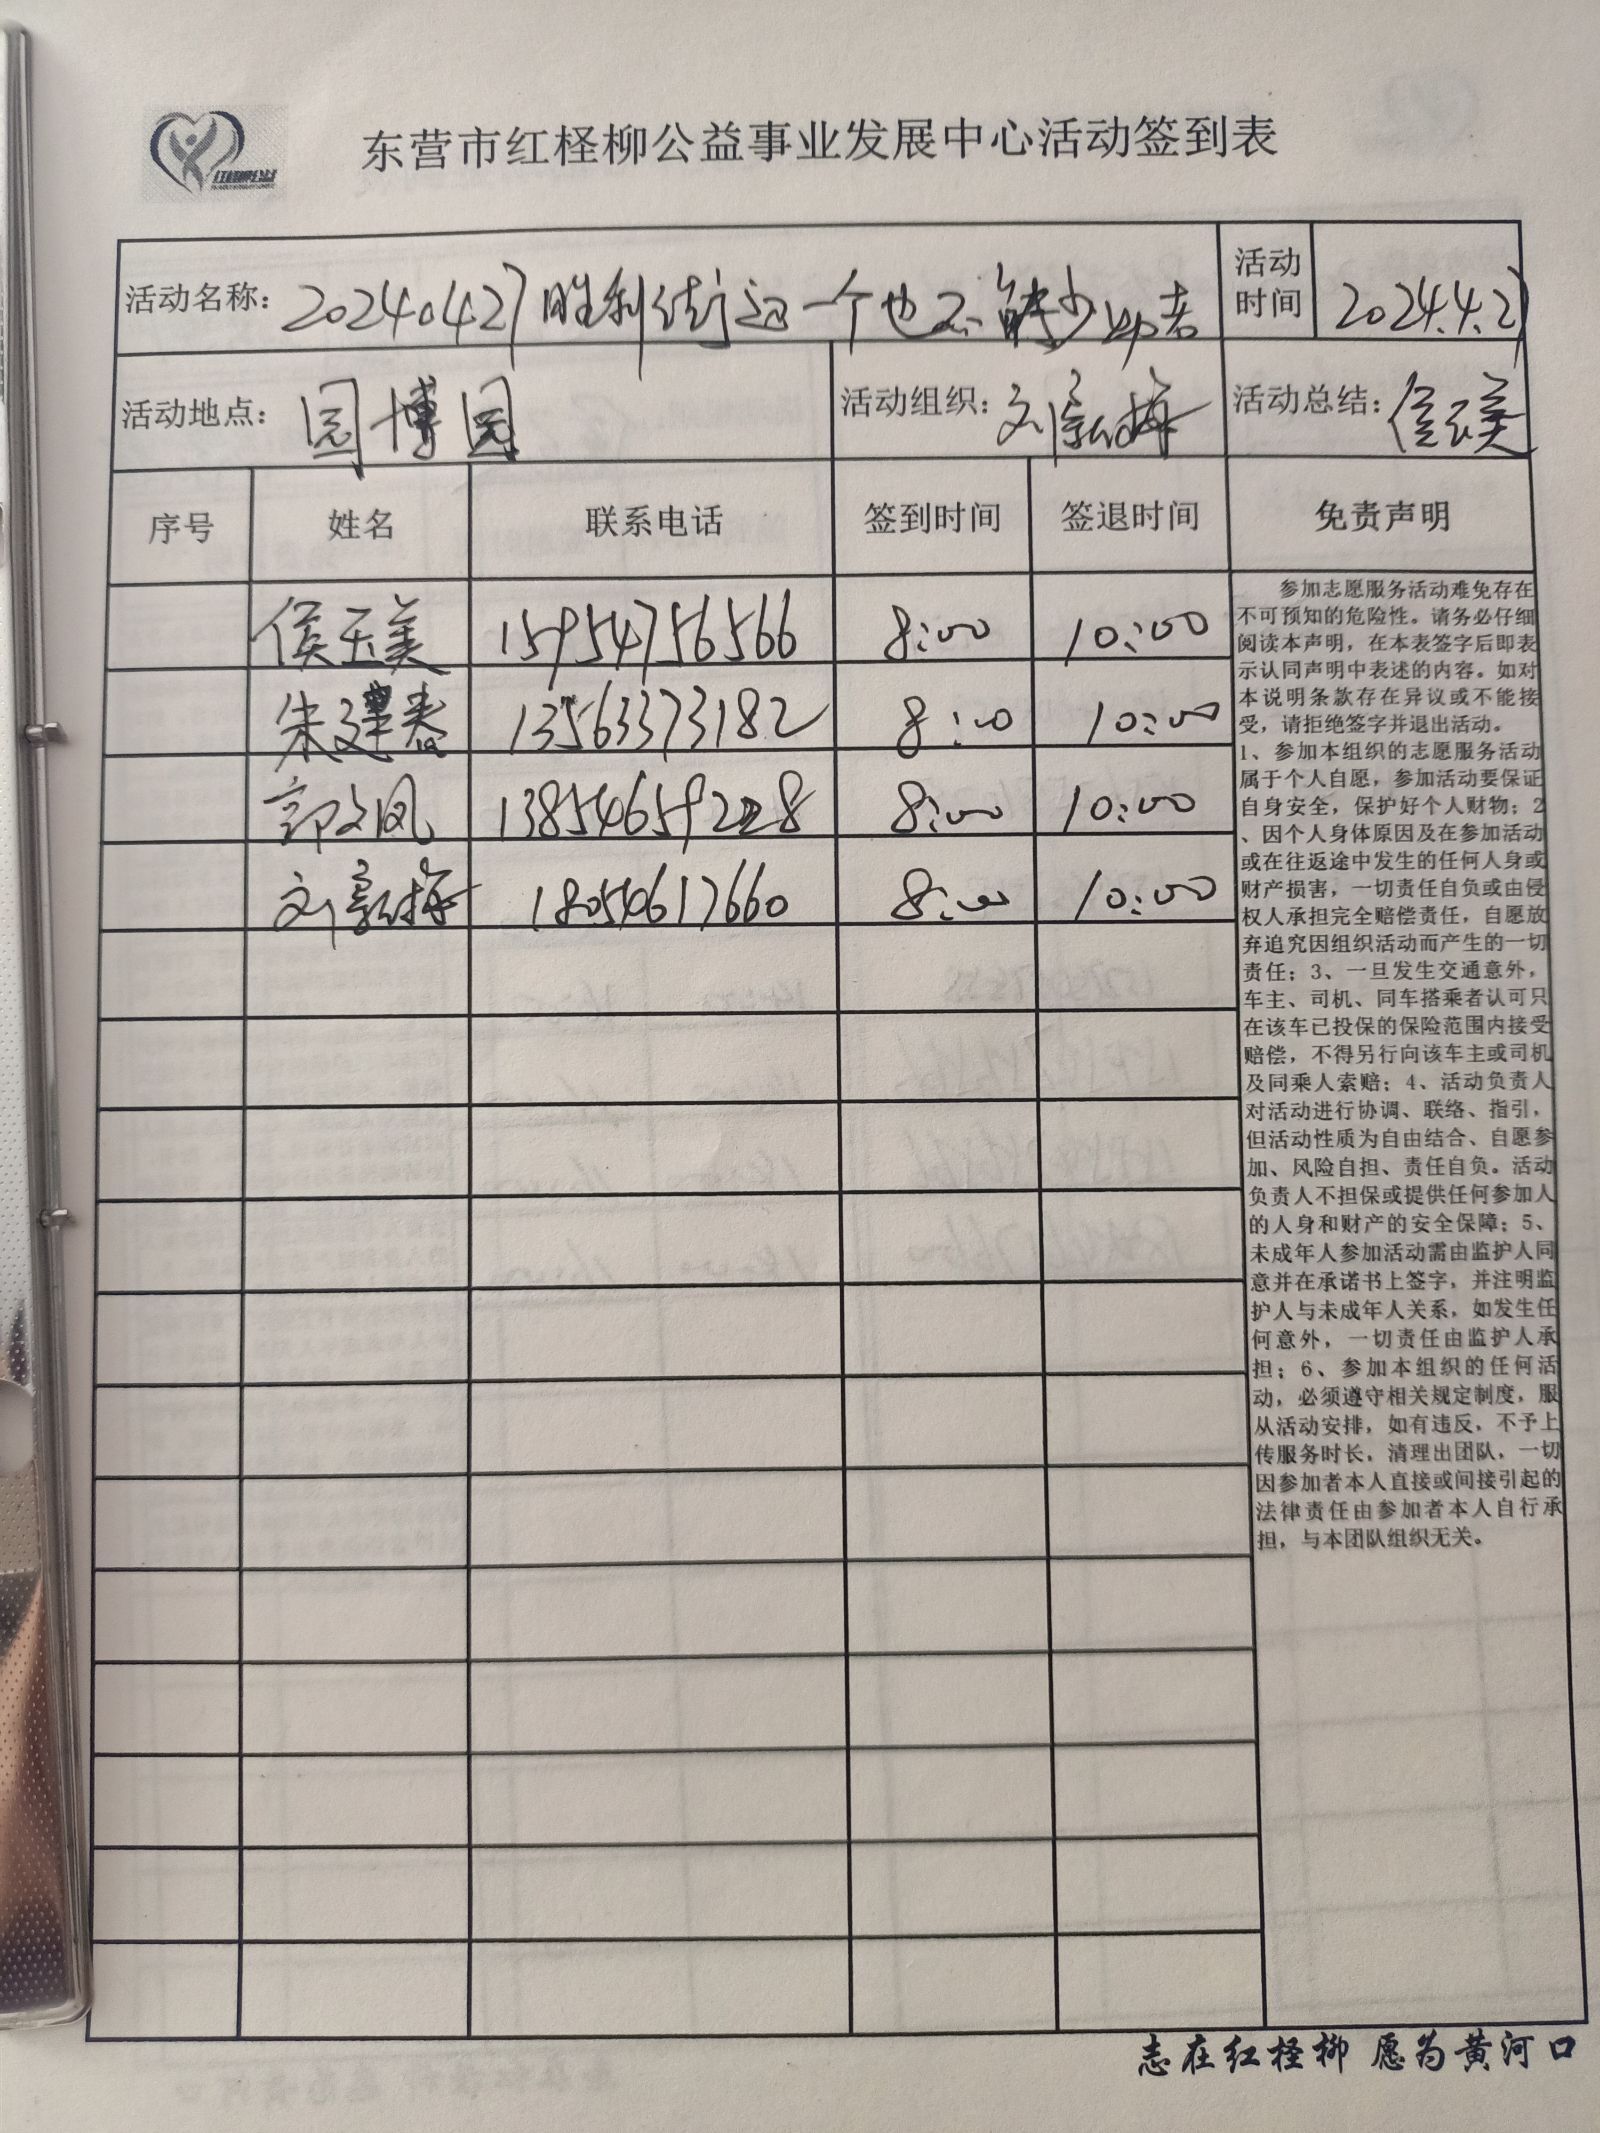 东营市红柽柳公益事业发展中心活动签到表
活动名称： 20240427胜利街道一个也不能少
活动时间 2024.4.27
活动地点： 园博园 活动组织： 活动总结： 侯玉美
序号 姓名 联系电话 签到时间 签退时间 免责声明
侯玉美 15954756566 8:00 10:00
朱建春 13563373182 8:00 10:00
郭文凤 8:00 10:00
18054617660 8:00 10:00
参加志愿服务活动难免存在
不可预知的危险性。请务必仔细
阅读本声明，在本表签字后即表
示认同声明中表述的内容。如对
本说明条款存在异议或不能接
受，请拒绝签字并退出活动。
1、参加本组织的志愿服务活动
属于个人自愿，参加活动要保证
自身安全，保护好个人财物；2
、因个人身体原因及在参加活动
或在往返途中发生的任何人身或
财产损害，一切责任自负或由侵
权人承担完全赔偿责任，自愿放
弃追究因组织活动而产生的一切
责任；3、一旦发生交通意外，
车主、司机、同车搭乘者认可只
在该车已投保的保险范围内接受
赔偿，不得另行向该车主或司机
及同乘人索赔；4、活动负责人
对活动进行协调、联络、指引，
但活动性质为自由结合、自愿参
加、风险自担、责任自负。活动
负责人不担保或提供任何参加人
的人身和财产的安全保障；5、
未成年人参加活动需由监护人同
意并在承诺书上签字，并注明监
护人与未成年人关系，如发生任
何意外，一切责任由监护人承
担；6、参加本组织的任何活
动，必须遵守相关规定制度，服
从活动安排，如有违反，不予上
传服务时长，清理出团队，一切
因参加者本人直接或间接引起的
法律责任由参加者本人自行承
担，与本团队组织无关。
志在红柽柳 愿为黄河口